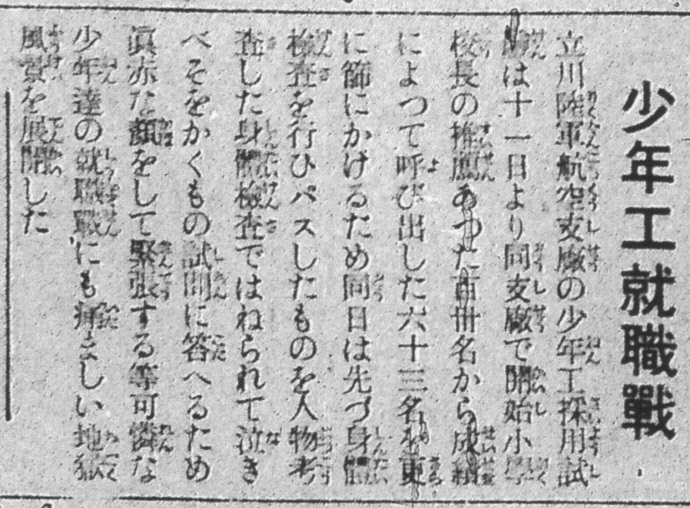 少年工就職戰
立川陸軍航空支廠の少年工採用試
驗は十一日より同支廠で開始小學
校長の推薦あつた百卅名から成績
によつて呼び出した六十三名を更
に篩にかけるため同日は先づ身體
檢査を行ひパスしたものを人物考
査した身體檢査ではねられて泣き
べそをかくもの試問に答へるため
眞赤な顏をして緊張する等可憐な
少年達の就職戰にも痛ましい地獄
風景を展開した